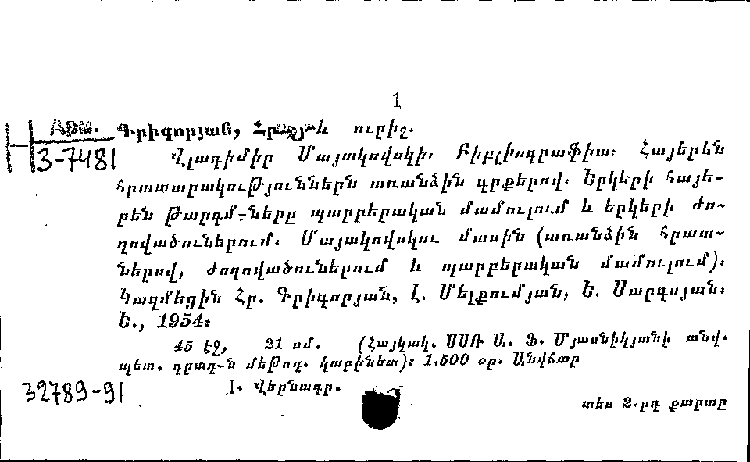 1
Арм. Գրիգորյան, Հրաչյա և ուրիշ.
3-7481 Վլադիմիր Մայակովսկի։ Բիբլիոգրաֆիա։ Հայերեն
հրատարակություններն առանձին գրքերով։ Երկերի հայե-
րեն թարգմ-ները պարբերական մամուլում և երկերի ժո-
ղովածուներում. Մայակովսկու մասին (առանձին հրատ-
ներով, ժողովածուներում և պարբերական մամուլում)։
Կազմեցին Հր. Գրիգորյան, Լ. Մելքումյան, Ե. Սարգսյան։
Ե., 1954։
45 էջ, 21 սմ. (Հայկակ. ՍՍՌ Ա. Ֆ. Մյասնիկյանի անվ.
պետ. գրադ-ն մեթոդ. կաբինետ)։ 1.500 օր. Անվճար
32789-91 I. վերնագր.
տես 2-րդ քարտը